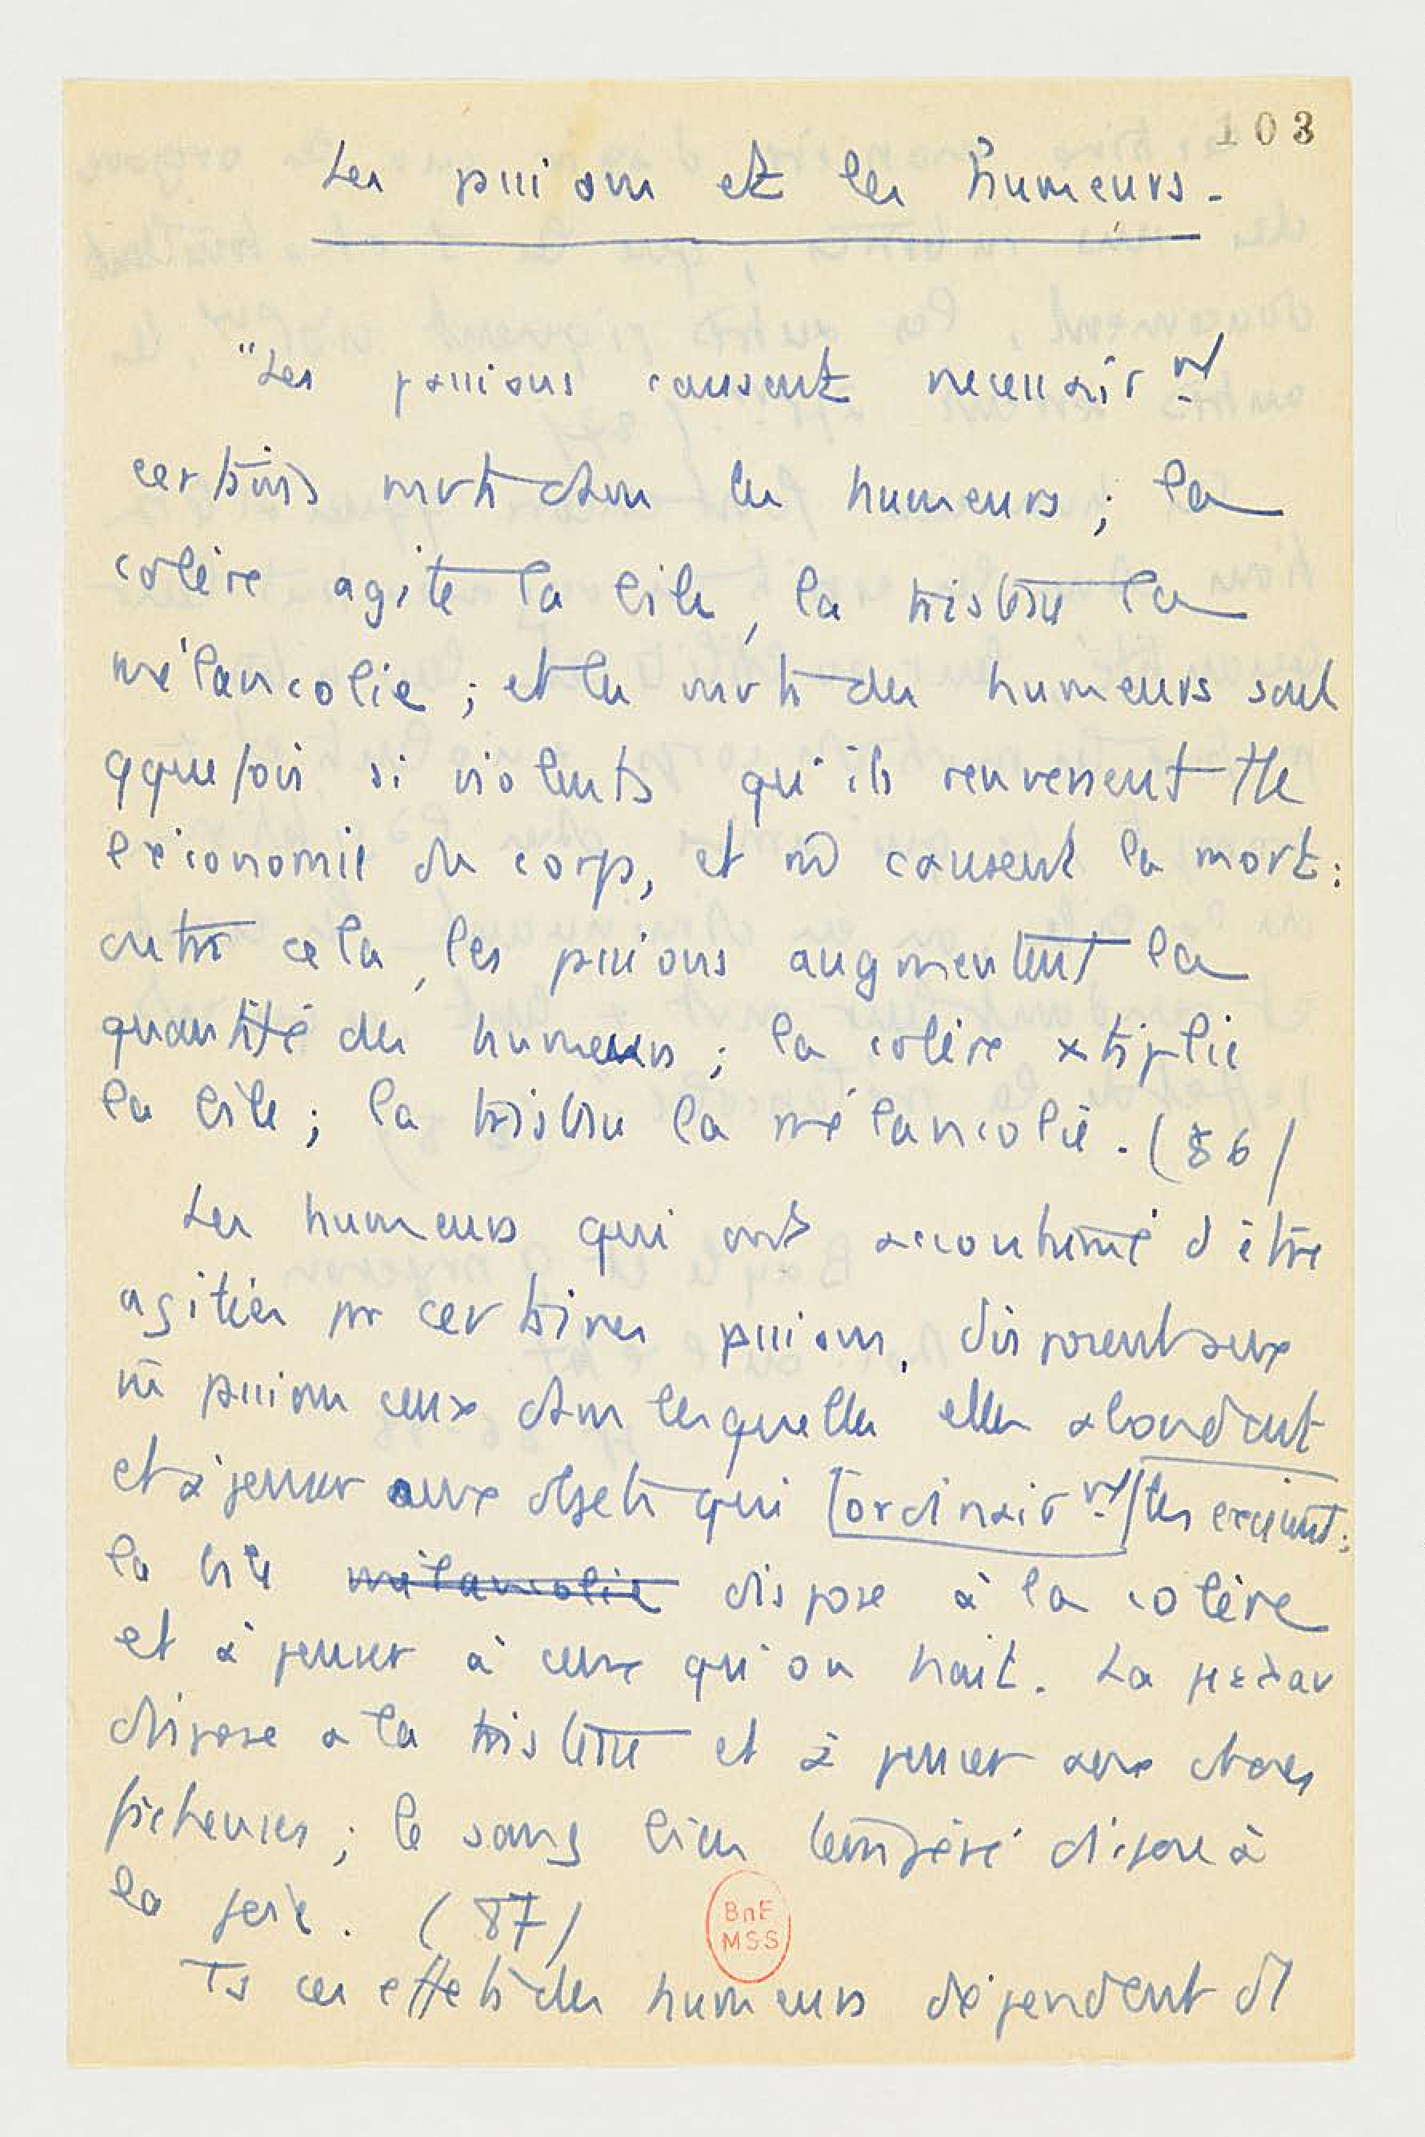 103
Les passions et les humeurs.
"Les passions causent necessairmt
certains mvts dans les humeurs ; la
colère agite la bile, la tristesse la
mélancolie ; et les mvts des humeurs sont
qquefois si violents qu'ils renversent tte
l'économie du corps, et m̄ causent la mort :
outre cela, les passions augmentent la
quantité des humeurs ; la colère xtiplie
la bile ; la tristesse la mélancolie. (86)
Les humeurs qui ont accoutumé d'être
agitées pr certaines passions, disposent aux
m̄ passions ceux dans lesquelles elles abondent
et à penser aux objets qui [ordinairmt] les excitent ;
la bile mélancolie dispose à la colère
et à penser à ceux qu'on hait. La
dispose a la tristesse et à penser aux choses
fâcheuses ; le sang bien tempéré dispose à
la joie. (87)
BnF
MSS
Ts ces effets des humeurs dépendent d